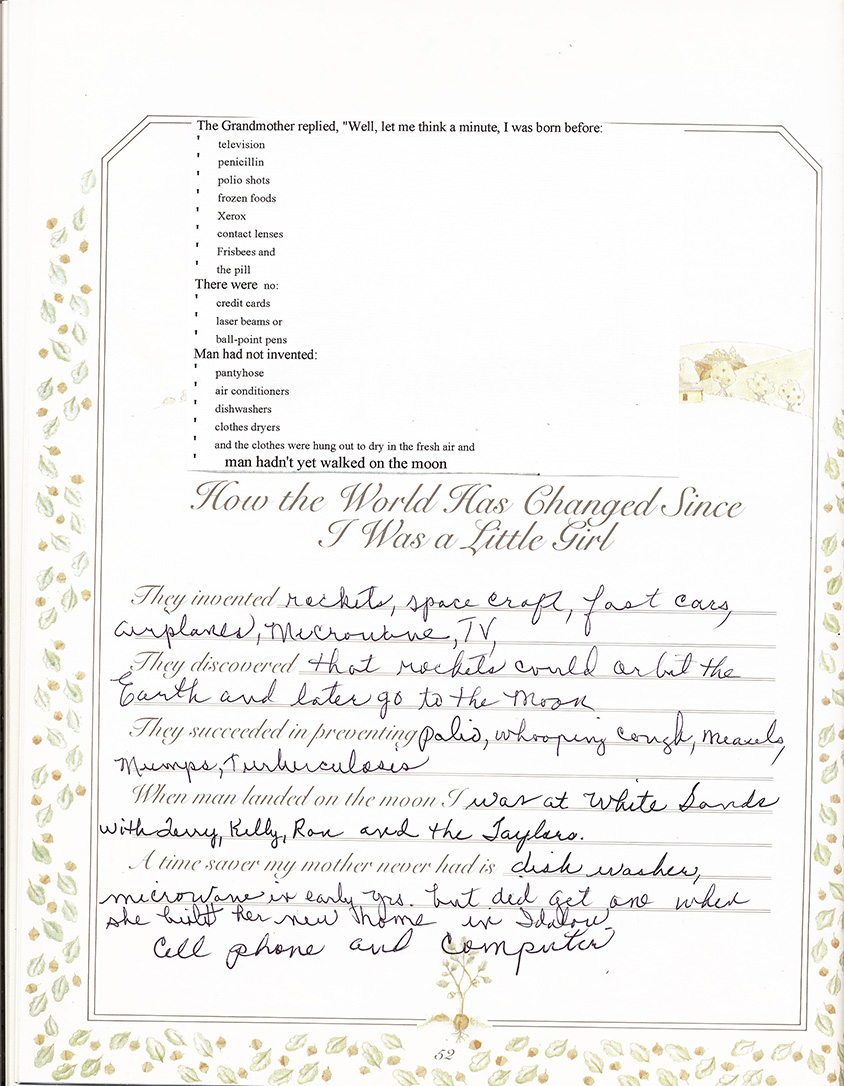 The Grandmother replied, "Well, let me think a minute, I was born before:
' television
' penicillin
' polio shots
' frozen foods
' Xerox
' contact lenses
' Frisbees and
' the pill
There were no:
' credit cards
' laser beams or
' ball-point pens
Man had not invented:
' pantyhose
' air conditioners
' dishwashers
' clothes dryers
' and the clothes were hung out to dry in the fresh air and
' man hadn't yet walked on the moon
How the World Has Changed Since
I Was a Little Girl
They invented rockets, space craft, fast cars,
airplanes, Microwave, TV,
They discovered that rockets could orbit the
Earth and later go to the Moon
They succeeded in preventing polio, whooping cough, Measels,
Mumps, Turburculosis
When man landed on the moon I was at White Sands
with Terry, Kelly, Ron and the Taylors.
A time saver my mother never had is dish washer,
microwave in early yrs. but did get one when
she built her new home in Idalou
Cell phone and Computer
52